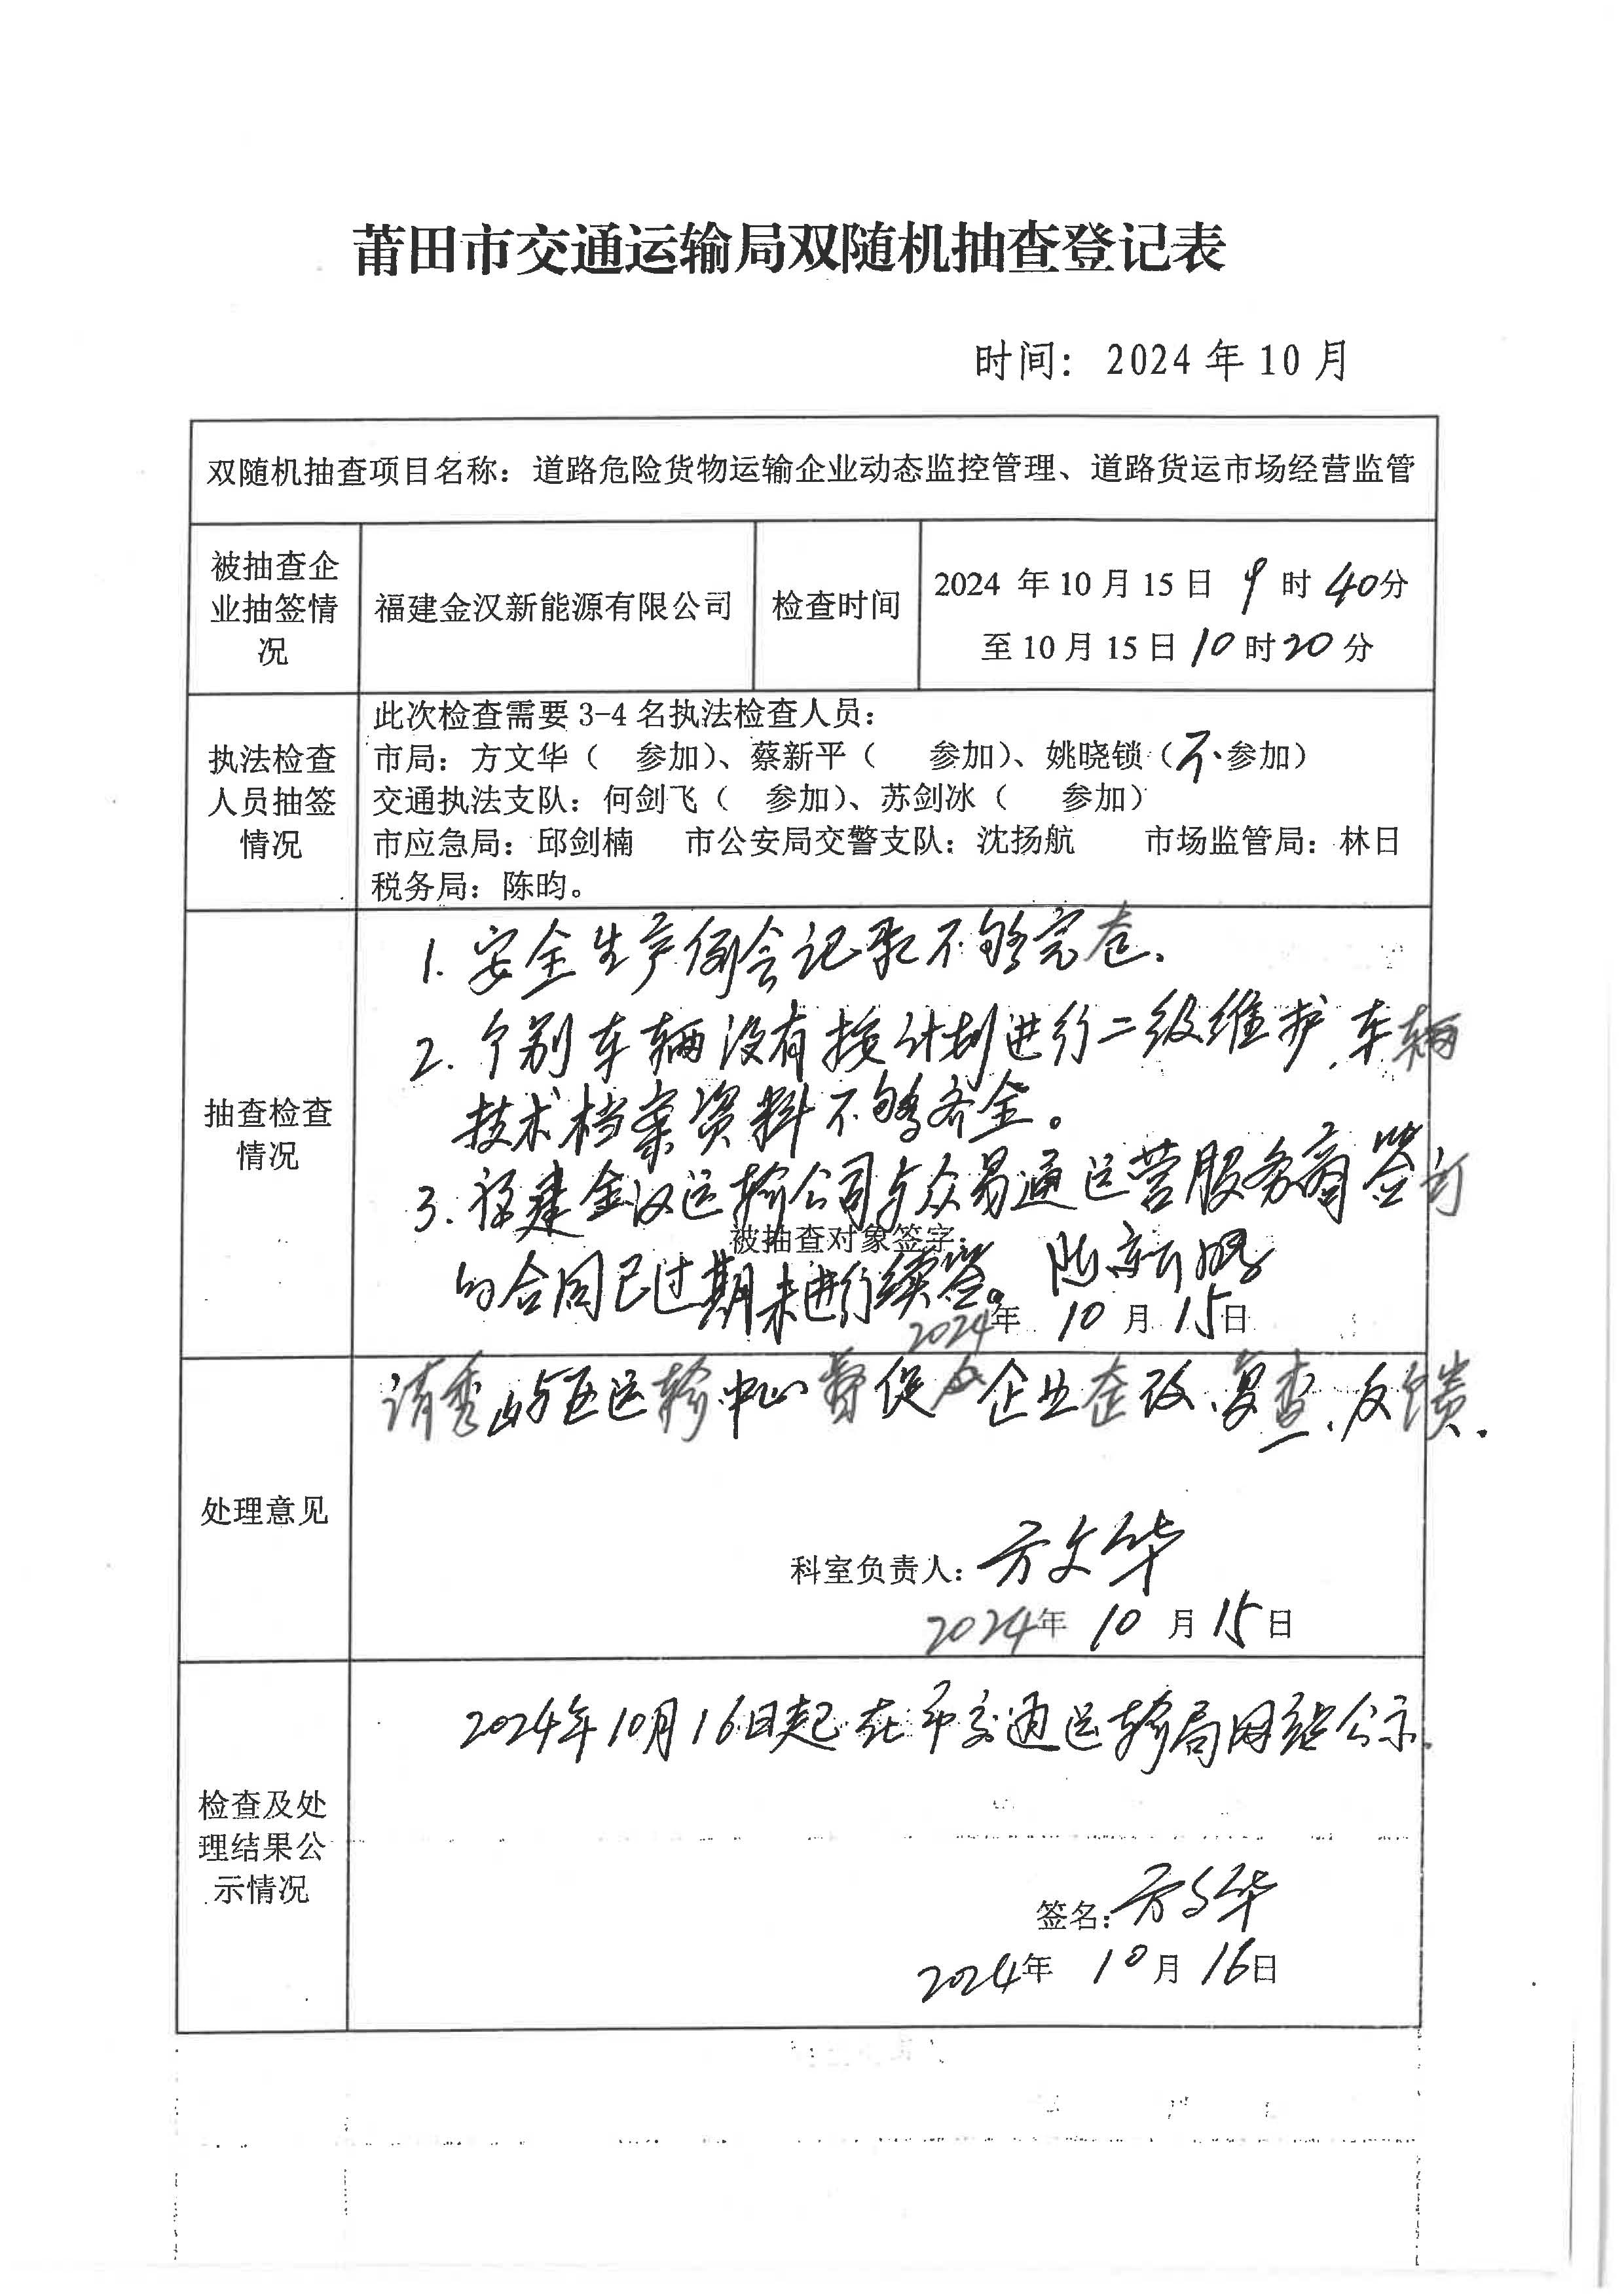 莆田市交通运输局双随机抽查登记表
时间：2024年10月
双随机抽查项目名称：道路危险货物运输企业动态监控管理、道路货运市场经营监管
被抽查企
业抽签情
况
福建金汉新能源有限公司
检查时间
2024 年10月15日 9时40分
至10月15日10时20分
执法检查
人员抽签
情况
此次检查需要3-4名执法检查人员：
市局：方文华（ 参加）、蔡新平（ 参加）、姚晓锁（不参加）
交通执法支队：何剑飞（ 参加）、苏剑冰（ 参加）
市应急局：邱剑楠 市公安局交警支队：沈扬航 市场监管局：林日
税务局：陈昀。
抽查检查
情况
1. 安全生产例会记录不够完
2. 个别车辆没有按计划进行二级维护、车辆
技术档案资料不够齐全。
3. 福建金汉运输公司与众易通运营服务商签订
被抽查对象签字：
的合同已过期未进行续签。 陈新
2024年 10月15日
处理意见
请秀屿区运输中心督促 企业整改、复查、反馈.
科室负责人：方文华
2024年 10月15日
检查及处
理结果公
示情况
2024年10月16日起在市交通运输局网站公示.
签名：方文华
2024年 10月16日